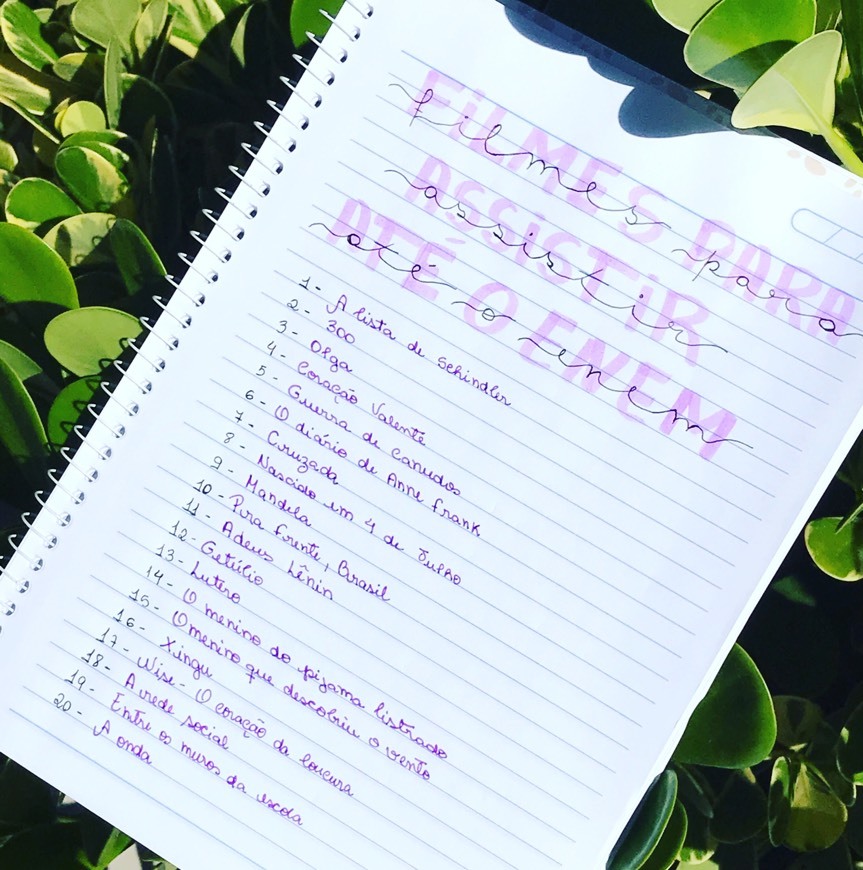 Filmes para
assistir
até o enem
FILMES PARA
ASSISTIR
ATÉ O ENEM
1- A lista de Schindler
2- 300
3- Olga
4- Coração Valente
5- Guerra de Canudos
6- O diário de Anne Frank
7- Cruzada
8- Nascido em 4 de Julho
9- Mandela
10- Pra frente, Brasil
11- Adeus Lênin
12- Getúlio
13- Lutero
14- O menino do pijama listrado
15- O menino que descobriu o vento
16- Xingu
17- Nise- O coração da loucura
18- A rede social
19- Entre os muros da escola
20- A onda